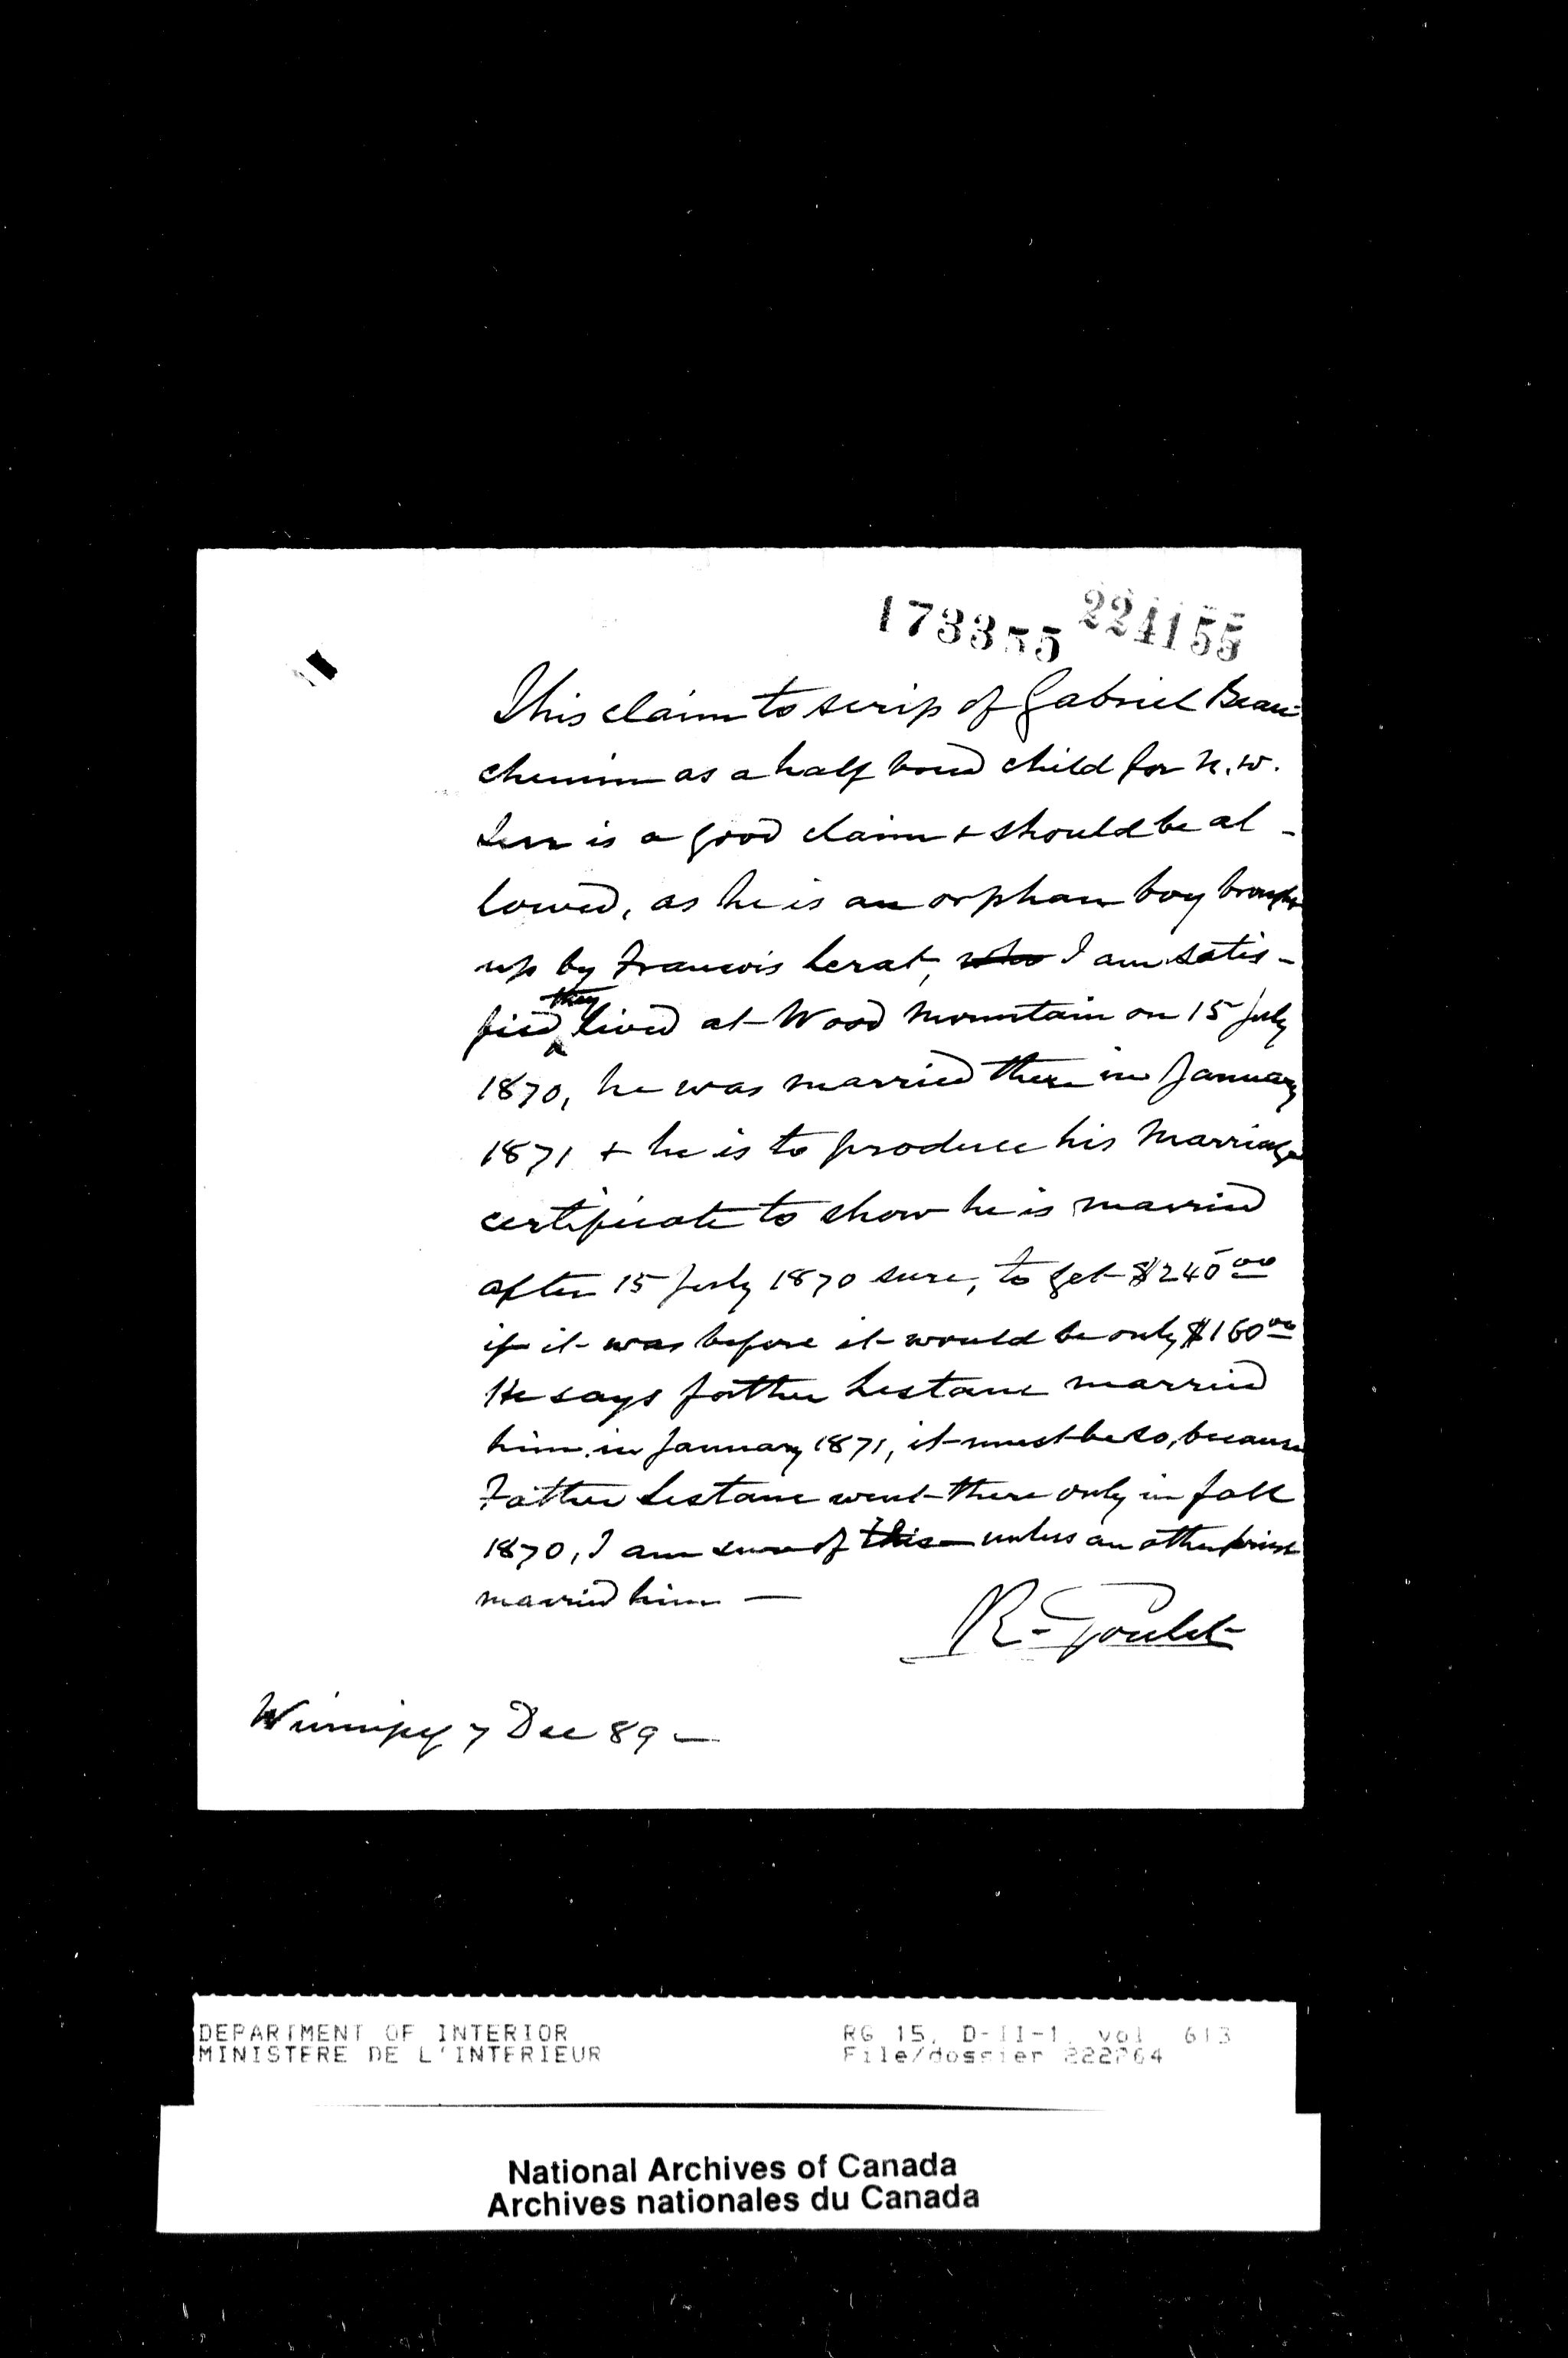 173355 224155
This claim to scrip of Gabriel Beau-
chemin as a half breed child for N.W.
Terr is a good claim & should be al-
lowed, as he is an orphan boy brought
up by Francois Lerat, who I am satis-
they
fied lived at Wood Mountain on 15 July
1870, he was married there in January
1871 & he is to produce his marriage
certificate to show he is married
after 15 July 1870 sure, to get $240 00
if it was before it would be only $160 00
He says father Lestanc married
him in January 1871, it must be so, because
Father Lestanc went there only in fall
1870, I am sure of this unless an other priest
married him —
R. Goulet
Winnipeg 7 Dec 89 —
DEPARTMENT OF INTERIOR RG 15, D-II-1, vol 613
MINISTERE DE L'INTERIEUR File/dossier
National Archives of Canada
Archives nationales du Canada